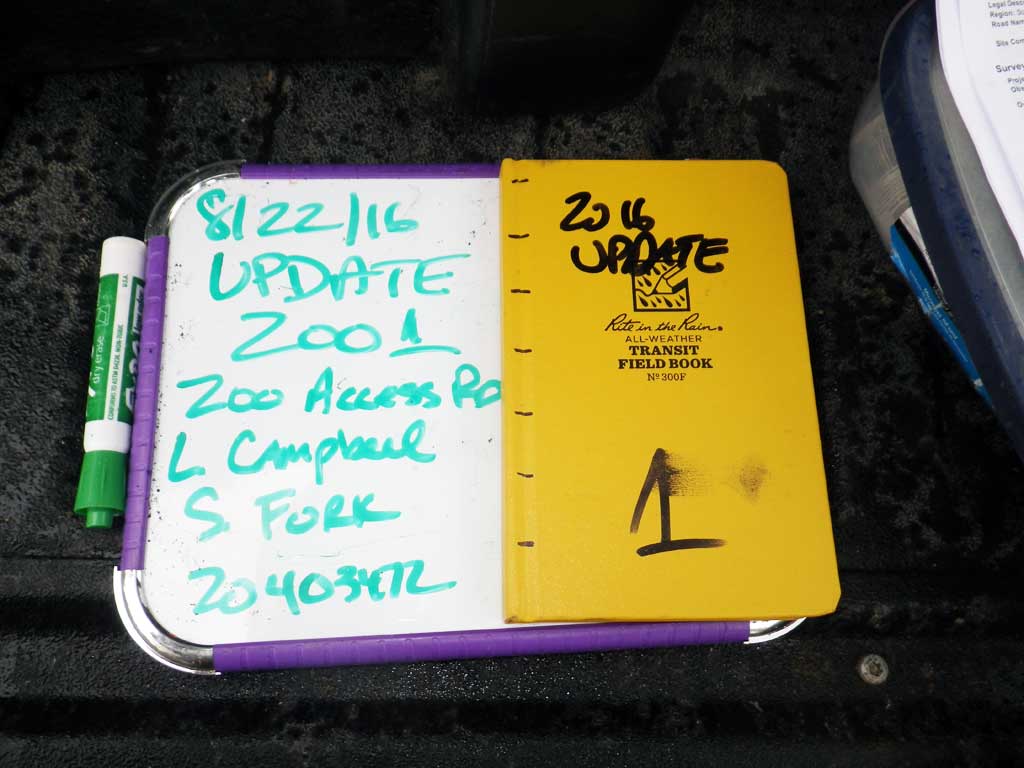 8/22/16
UPDATE
ZOO 1
Zoo Access Rd
L Campbell
S. FORK
20403472
2016
UPDATE
Rite in the Rain.
ALL-WEATHER
TRANSIT
FIELD BOOK
Nº 300F
1
dry erase
CONFORMS TO ASTM D4236, NON-TOXIC
U.S.A.
Region:
Road Nam
Site Com
Survey
Proje